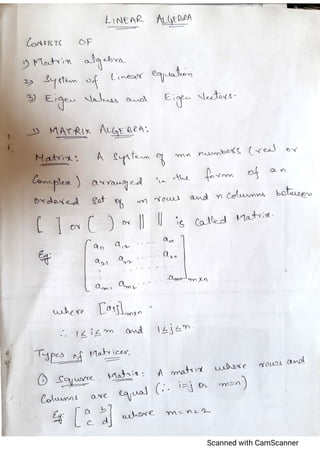 LINEAR ALGEBRA
CONSISTS OF
1) Matrix algebra
2) System of Linear equation
3) Eigen Values and Eigen Vectors.
1) MATRIX ALGEBRA:
Matrix: A System of mn numbers (real or
Complex) arranged in the form of an
ordered set of m rows and n Columns between
[ ] or ( ) or || || is Called Matrix.
Eg: [ a11 a12 ..... a1n
a21 a22 ..... a2n
am1 am2 ..... amn ] m×n
where [aij]m×n .
∴ 1≤i≤m and 1≤j≤n
Types of Matrices:
① Square Matrix: A matrix where rows and
Columns are equal (∴ i=j or m=n)
Eg: [ a b
c d ] where m=n=2
Scanned with CamScanner